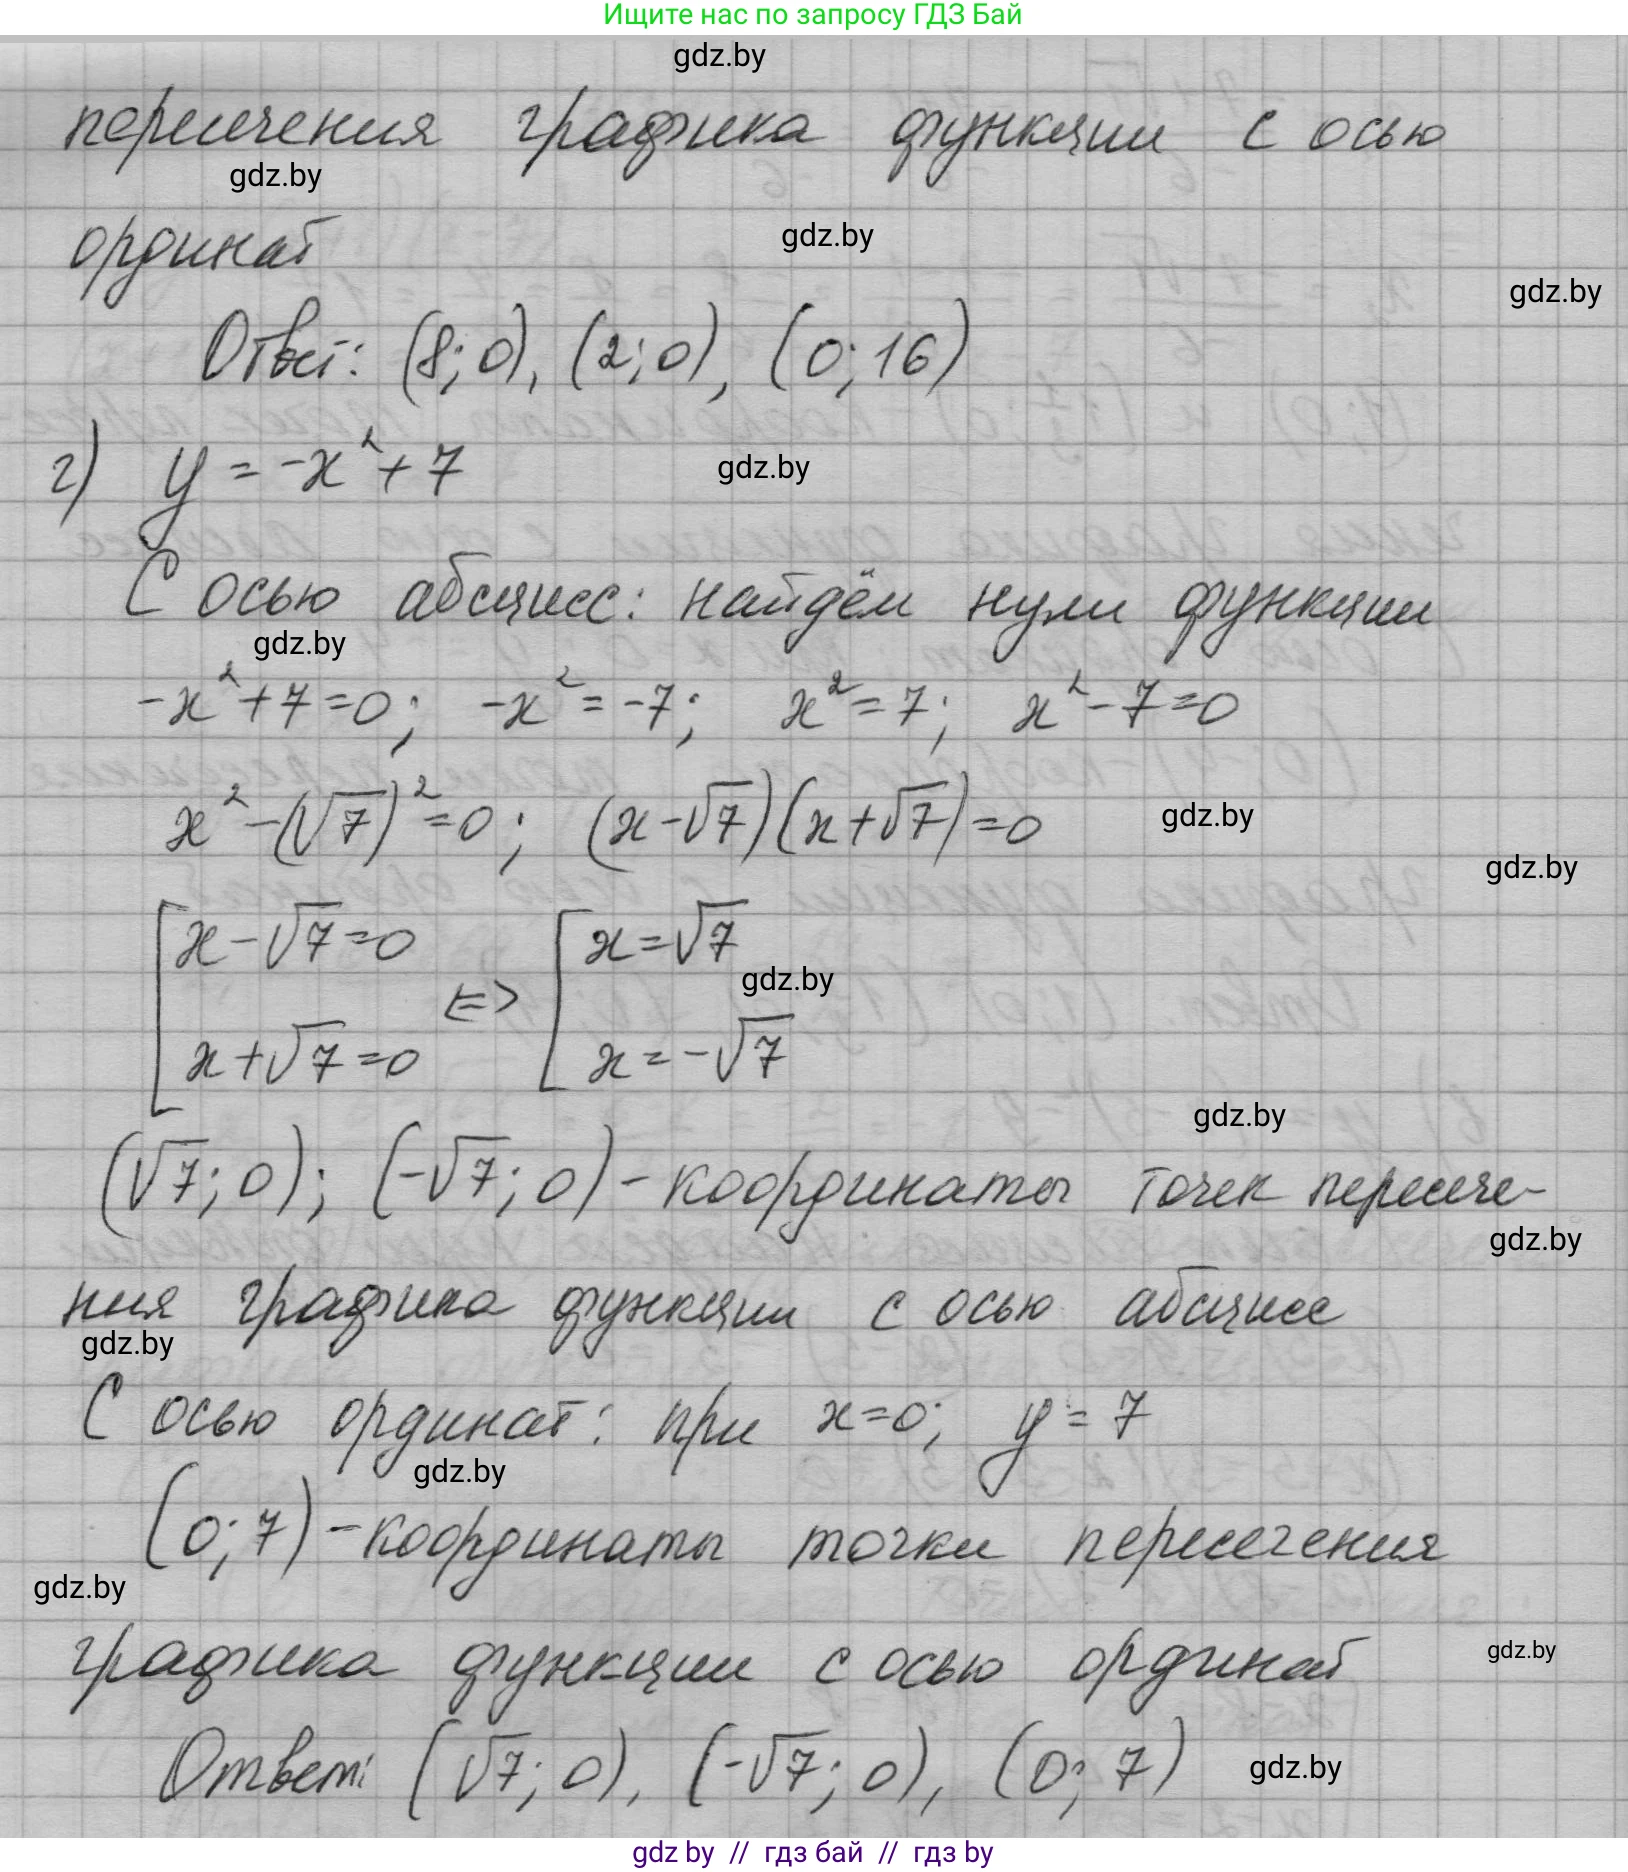 Ищите нас по запросу ГДЗ Бай
gdz.by
пересечения графика функции с осью
gdz.by
ординат
gdz.by
gdz.by
Ответ: (8; 0), (2; 0), (0; 16)
г) y = -x² + 7
gdz.by
С осью абсцисс: найдём нули функции
gdz.by
-x² + 7 = 0; -x² = -7; x² = 7; x² - 7 = 0
x² - (√7)² = 0; (x - √7)(x + √7) = 0
gdz.by
gdz.by
[x - √7 = 0 <=> [x = √7
gdz.by
x + √7 = 0 x = -√7
gdz.by
(√7; 0); (-√7; 0) - координаты точек пересече-
gdz.by
ния графика функции с осью абсцисс
gdz.by
С осью ординат: при x = 0; y = 7
gdz.by
(0; 7) - координаты точки пересечения
gdz.by
графика функции с осью ординат
gdz.by
Ответ: (√7; 0), (-√7; 0), (0; 7)
gdz.by
gdz by // гдз бай // gdz by